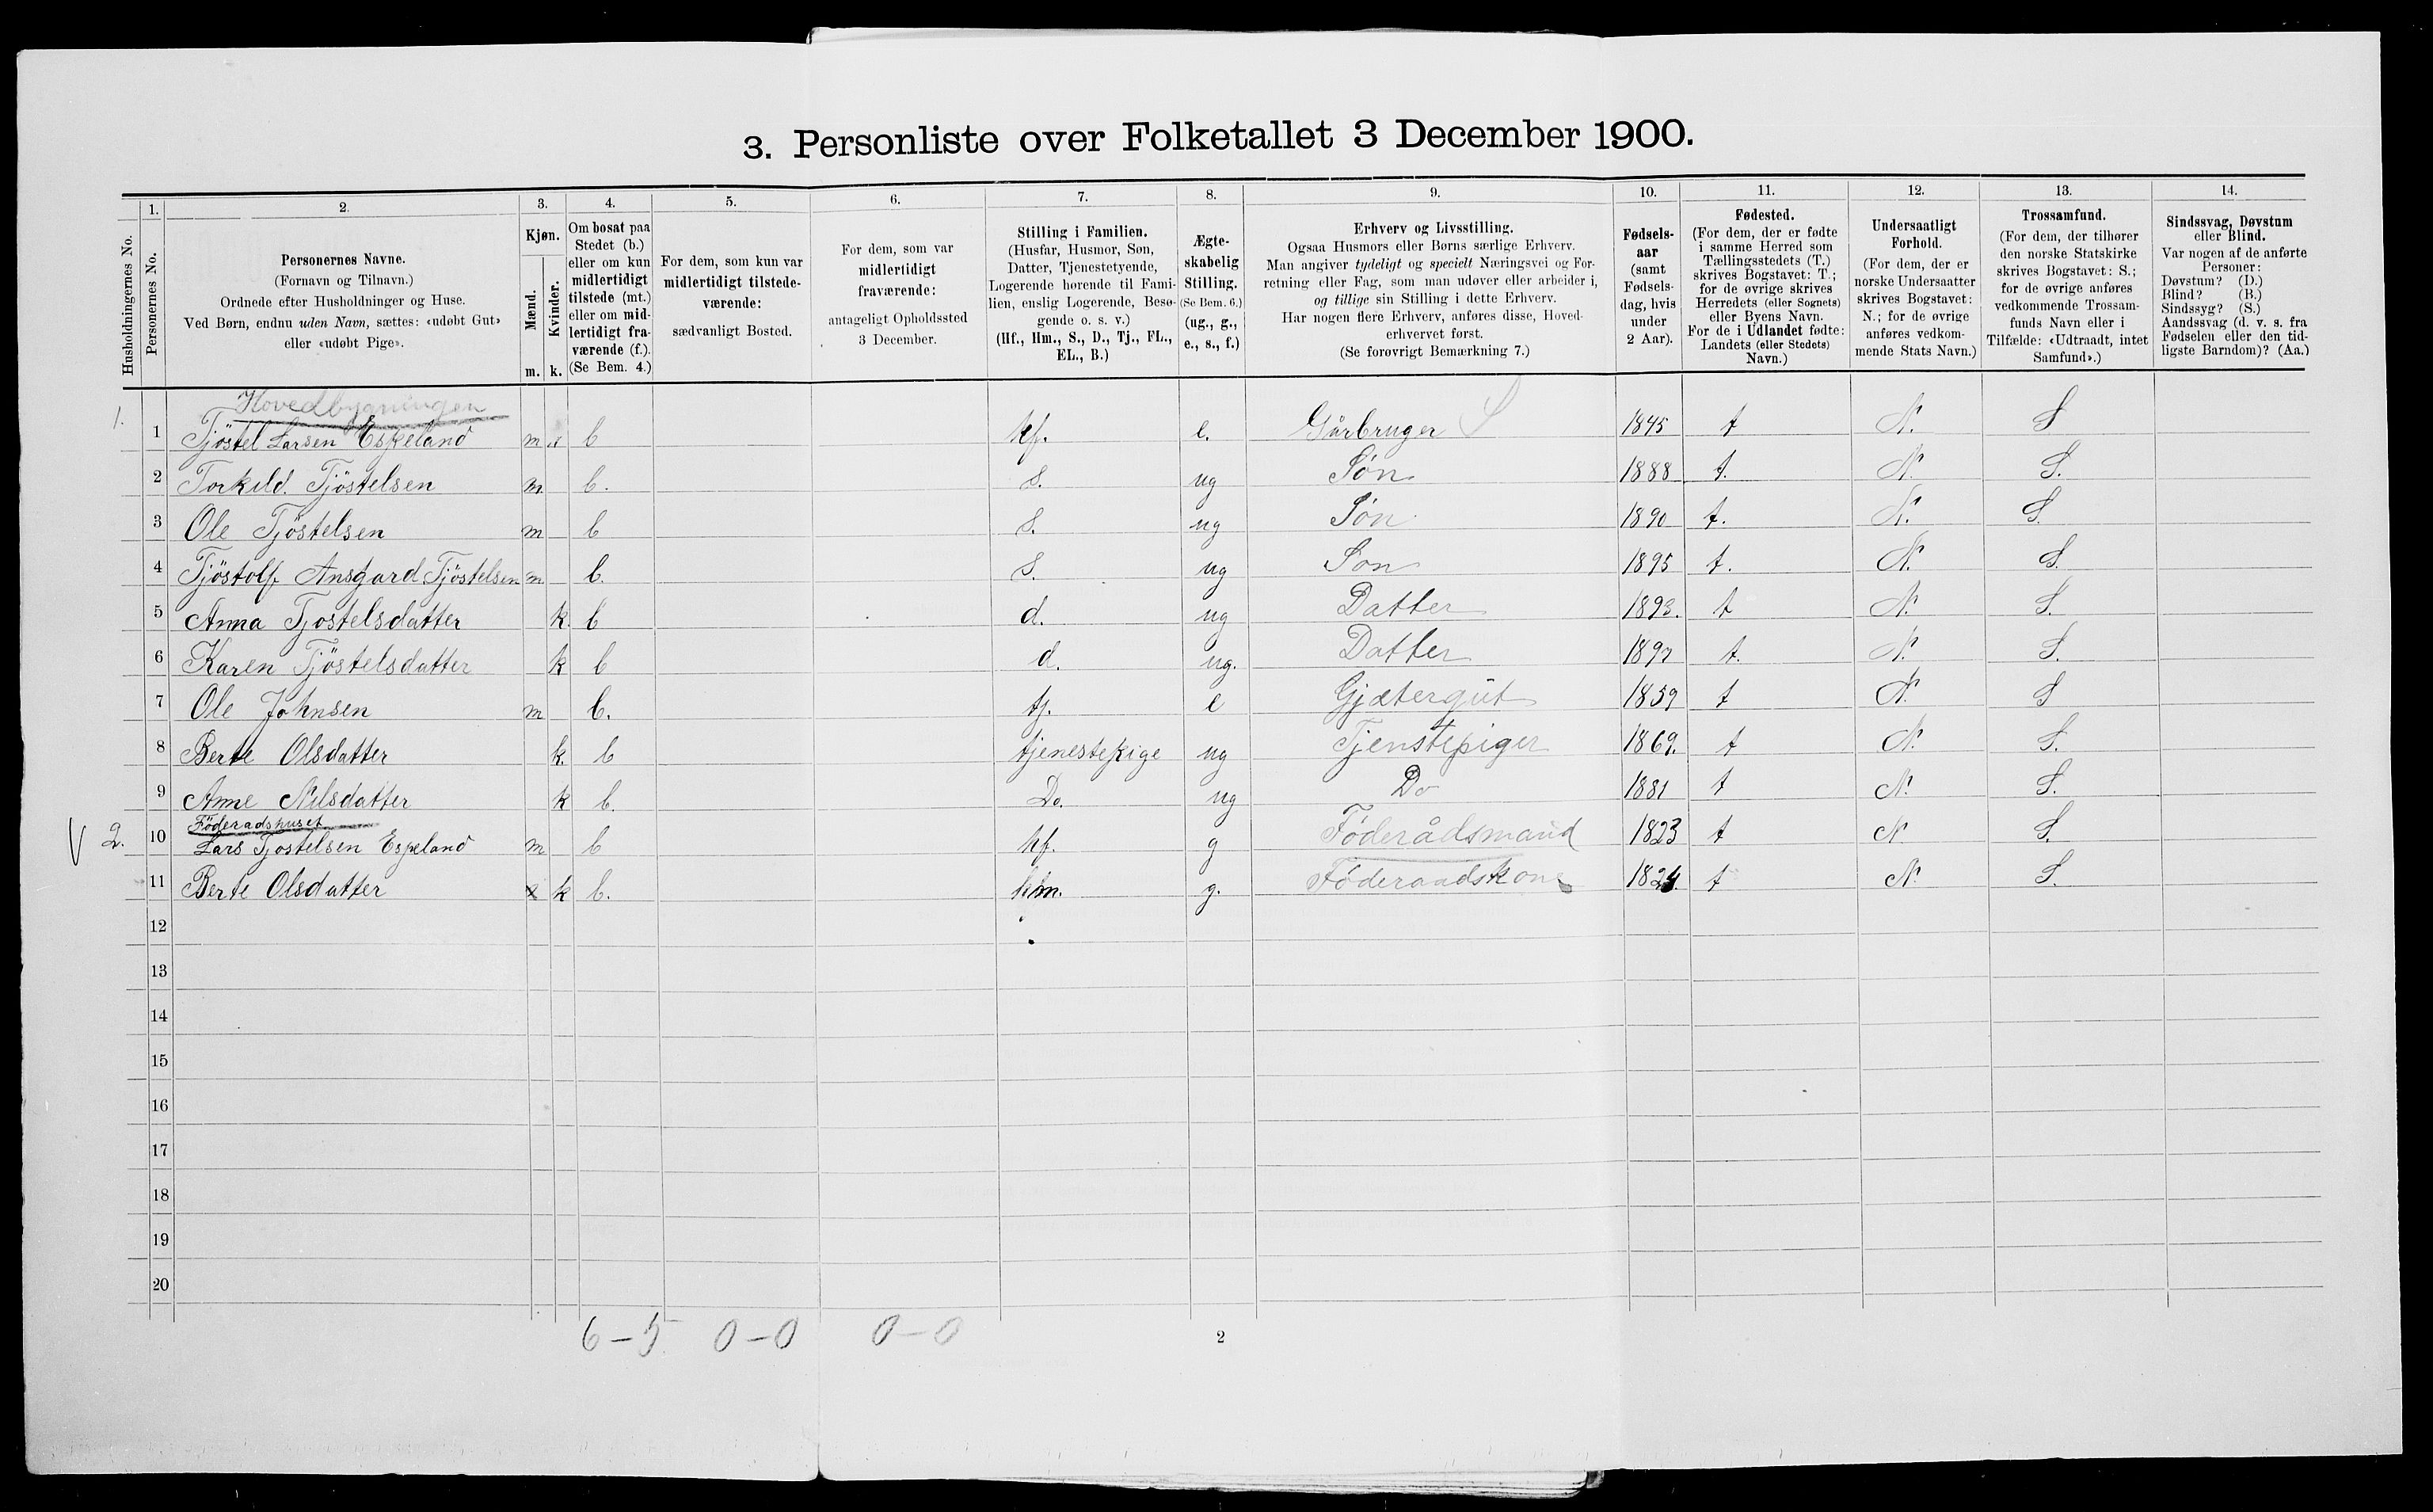 3. Personliste over Folketallet 3 December 1900.
Husholdningernes No.
1. Personernes No.
2. Personernes Navne.
(Fornavn og Tilnavn.)
Ordnede efter Husholdninger og Huse.
Ved Børn, endnu uden Navn, sættes: «udøbt Gut»
eller «udøbt Pige».
3. Kjøn.
Mænd. Kvinder.
m. k.
4. Om bosat paa
Stedet (b.)
eller om kun
midlertidigt
tilstede (mt.)
eller om mid-
lertidigt fra-
værende (f.).
(Se Bem. 4.)
5. For dem, som kun var
midlertidigt tilstede-
værende:
sædvanligt Bosted.
6. For dem, som var
midlertidigt
fraværende:
antageligt Opholdssted
3 December.
7. Stilling i Familien.
(Husfar, Husmor, Søn,
Datter, Tjenestetyende,
Logerende hørende til Fami-
lien, enslig Logerende, Besø-
gende o. s. v.)
(Hf., Hm., S., D., Tj., FL.,
EL., B.)
8. Ægte-
skabelig
Stilling.
(Se Bem. 6.)
(ug., g.,
e., s., f.)
9. Erhverv og Livsstilling.
Ogsaa Husmors eller Børns særlige Erhverv.
Man angiver tydeligt og specielt Næringsvei og For-
retning eller Fag, som man udøver eller arbeider i,
og tillige sin Stilling i dette Erhverv.
Har nogen flere Erhverv, anføres disse, Hoved-
erhvervet først.
(Se forøvrigt Bemærkning 7.)
10. Fødsels-
aar
(samt
Fødsels-
dag, hvis
under
2 Aar).
11. Fødested.
(For dem, der er fødte
i samme Herred som
Tællingsstedets (T.)
skrives Bogstavet: T.;
for de øvrige skrives
Herredets (eller Sognets)
eller Byens Navn.
For de i Udlandet fødte:
Landets (eller Stedets)
Navn.)
12. Undersaatligt
Forhold.
(For dem, der er
norske Undersaatter
skrives Bogstavet:
N.; for de øvrige
anføres vedkom-
mende Stats Navn.)
13. Trossamfund.
(For dem, der tilhører
den norske Statskirke
skrives Bogstavet: S.;
for de øvrige anføres
vedkommende Trossam-
funds Navn eller i
Tilfælde: «Udtraadt, intet
Samfund».)
14. Sindssvag, Døvstum
eller Blind.
Var nogen af de anførte
Personer:
Døvstum? (D.)
Blind? (B.)
Sindssyg? (S.)
Aandssvag (d. v. s. fra
Fødselen eller den tid-
ligste Barndom)? (Aa.)
Hovedbygningen
1. 1 Tjöstel Larsen Espeland m b hf. e. Gårbruger S 1845 t N. S
2 Torkild. Tjöstelsen m b. s. ug Søn 1888 t. N. S.
3 Ole Tjöstelsen m b s. ug Søn 1890 t. N. S.
4 Tjöstolf Ansgard Tjöstelsen m b. s. ug Søn 1895 t. N. S.
5 Anna Tjostelsdatter k b d. ug Datter 1893. t N. S.
6 Karen Tjöstelsdatter k b d. ug. Datter 1897 t. N. S.
7 Ole Johnsen m b. tj. e Gjætergut 1859 t N. S
8 Berte Olsdatter k. b tjenestepige ug Tjenstepiger 1869. t N. S.
9 Anne Nilsdatter k b. Do. ug Do 1881 t N. S.
Föderadshuset
V 2. 10 Lars Tjostelsen Espeland m b hf. g Föderådsmand 1823 t N S.
11 Berte Olsdatter x k b. hm. g. Föderaadskone 1824 t N. S.
12
13
14
15
16
17
18
19
20
6 – 5 0 – 0 0 – 0
2